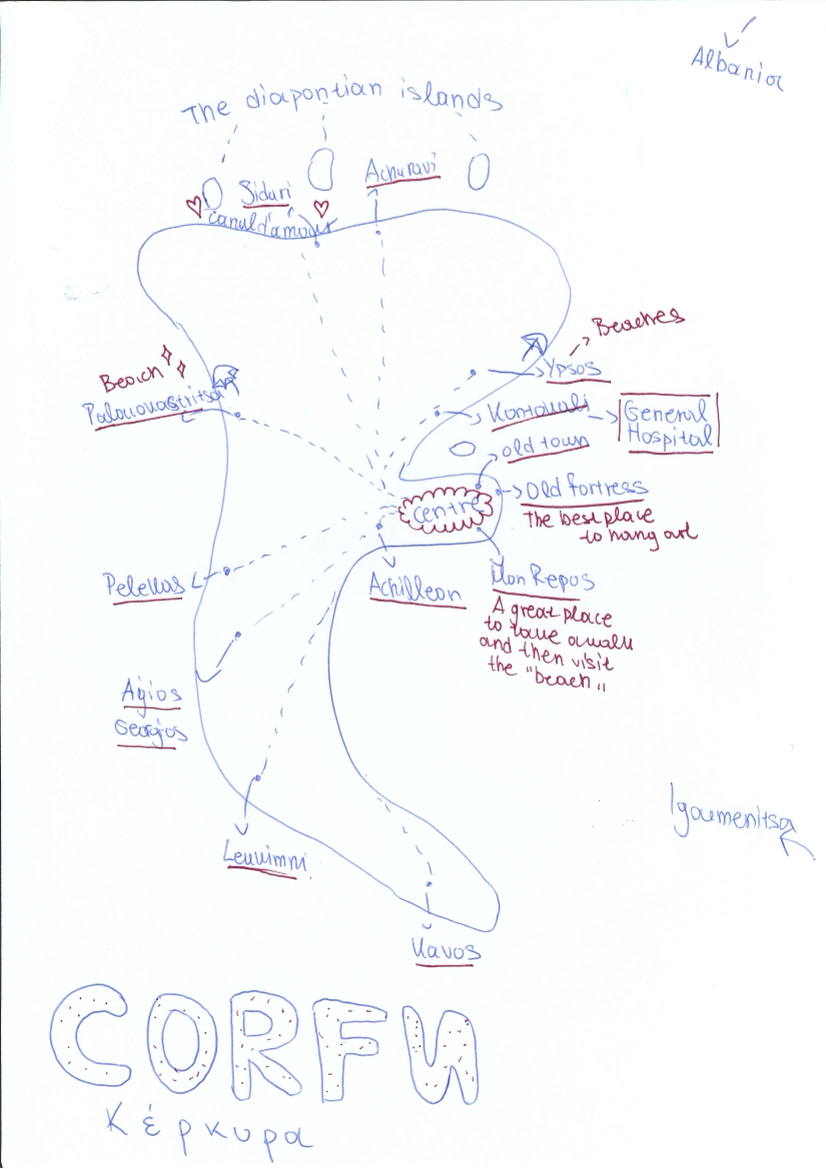 Albania
The diapontian islands
Siduri
Achuravi
canul d'amour
Beaches
Beach
Ypsos
Kontouali
General
Hospital
old town
Old fortress
centre
The best place
to hang out
Pelekas
Achilleon
Mon Repos
A great place
to take a walk
and then visit
the "beach"
Agios
Georgios
Igoumenitsa
Leukimni
Kavos
CORFU
Κέρκυρα